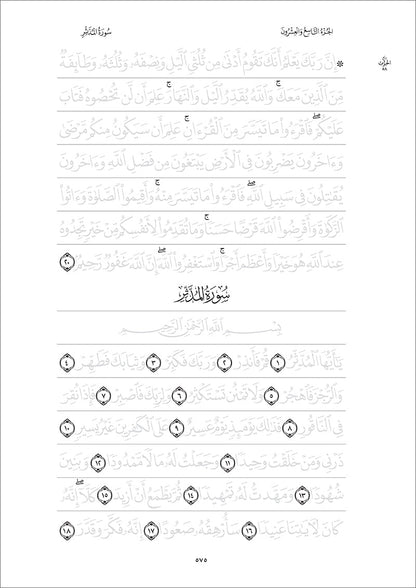 الجزء التاسع والعشرون سورة المدثر
الحزب ٥٨
۞ إِنَّ رَبَّكَ يَعْلَمُ أَنَّكَ تَقُومُ أَدْنَىٰ مِن ثُلُثَيِ ٱلَّيْلِ وَنِصْفَهُۥ وَثُلُثَهُۥ وَطَآئِفَةٌ
مِّنَ ٱلَّذِينَ مَعَكَ ۚ وَٱللَّهُ يُقَدِّرُ ٱلَّيْلَ وَٱلنَّهَارَ ۚ عَلِمَ أَن لَّن تُحْصُوهُ فَتَابَ
عَلَيْكُمْ ۖ فَٱقْرَءُوا۟ مَا تَيَسَّرَ مِنَ ٱلْقُرْءَانِ ۚ عَلِمَ أَن سَيَكُونُ مِنكُم مَّرْضَىٰ
وَءَاخَرُونَ يَضْرِبُونَ فِى ٱلْأَرْضِ يَبْتَغُونَ مِن فَضْلِ ٱللَّهِ وَءَاخَرُونَ
يُقَٰتِلُونَ فِى سَبِيلِ ٱللَّهِ ۖ فَٱقْرَءُوا۟ مَا تَيَسَّرَ مِنْهُ ۚ وَأَقِيمُوا۟ ٱلصَّلَوٰةَ وَءَاتُوا۟
ٱلزَّكَوٰةَ وَأَقْرِضُوا۟ ٱللَّهَ قَرْضًا حَسَنًا ۚ وَمَا تُقَدِّمُوا۟ لِأَنفُسِكُم مِّنْ خَيْرٍ تَجِدُوهُ
عِندَ ٱللَّهِ هُوَ خَيْرًا وَأَعْظَمَ أَجْرًا ۚ وَٱسْتَغْفِرُوا۟ ٱللَّهَ ۖ إِنَّ ٱللَّهَ غَفُورٌ رَّحِيمٌۢ ٢٠
سُورَةُ الْمُدَّثِّر
بِسْمِ ٱللَّهِ ٱلرَّحْمَٰنِ ٱلرَّحِيمِ
يَٰٓأَيُّهَا ٱلْمُدَّثِّرُ ١ قُمْ فَأَنذِرْ ٢ وَرَبَّكَ فَكَبِّرْ ٣ وَثِيَابَكَ فَطَهِّرْ ٤
وَٱلرُّجْزَ فَٱهْجُرْ ٥ وَلَا تَمْنُن تَسْتَكْثِرُ ٦ وَلِرَبِّكَ فَٱصْبِرْ ٧ فَإِذَا نُقِرَ
فِى ٱلنَّاقُورِ ٨ فَذَٰلِكَ يَوْمَئِذٍ يَوْمٌ عَسِيرٌ ٩ عَلَى ٱلْكَٰفِرِينَ غَيْرُ يَسِيرٍ ١٠
ذَرْنِى وَمَنْ خَلَقْتُ وَحِيدًا ١١ وَجَعَلْتُ لَهُۥ مَالًا مَّمْدُودًا ١٢ وَبَنِينَ
شُهُودًا ١٣ وَمَهَّدتُّ لَهُۥ تَمْهِيدًا ١٤ ثُمَّ يَطْمَعُ أَنْ أَزِيدَ ١٥ كَلَّآ ۖ إِنَّهُۥ
كَانَ لِءَايَٰتِنَا عَنِيدًا ١٦ سَأُرْهِقُهُۥ صَعُودًا ١٧ إِنَّهُۥ فَكَّرَ وَقَدَّرَ ١٨
٥٧٥